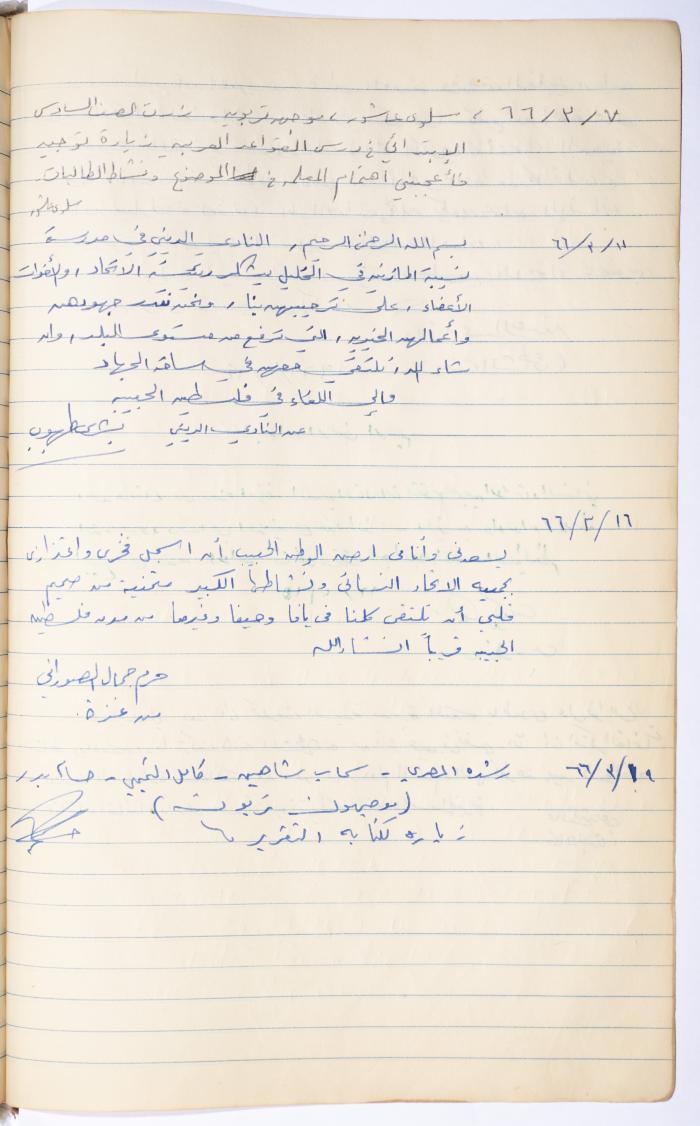 ٦٦/٣/٧ ، سلوى عاشور ، موجهة تربوية . زرت الصف السادس
الابتدائي في درس القواعد العربية زيارة توجيه
فأعجبني اهتمام المعلمة في الموضوع ونشاط الطالبات .
سلوى عاشور
٦٦/٣/١١ بسم الله الرحمن الرحيم ، النادي الديني في مدرسة
نسيبة المازنية في الخليل يشكر رئيسة الاتحاد ، والأخوات
الأعضاء ، على ترحيبهن بنا ، ونحن نقدر جهودهن
وأعمالهن الخيرية ، التي ترفع من مستوى البلد ، وان
شاء الله نلتقي معهن في ساحة الجهاد
والى اللقاء في فلسطين الحبيبة
عن النادي الديني بشرى طهبوب
٦٦/٣/١٦
يسعدني وأنا في ارض الوطن الحبيب أن اسجل فخري واعتزازي
بجمعية الاتحاد النسائي ونشاطها الكبير متمنية من صميم
قلبي أن نلتقي كلنا في يافا وحيفا وغيرها من مدن فلسطين
الحبيبة قريباً انشاء الله
حرم جمال الصوراني
من غزة .
٦٦/٣/١٩ رشده المصري - سحاب شاهين - كامل - حسام بدر
(موجهون تربويون)
زيارة لكتابة التقرير